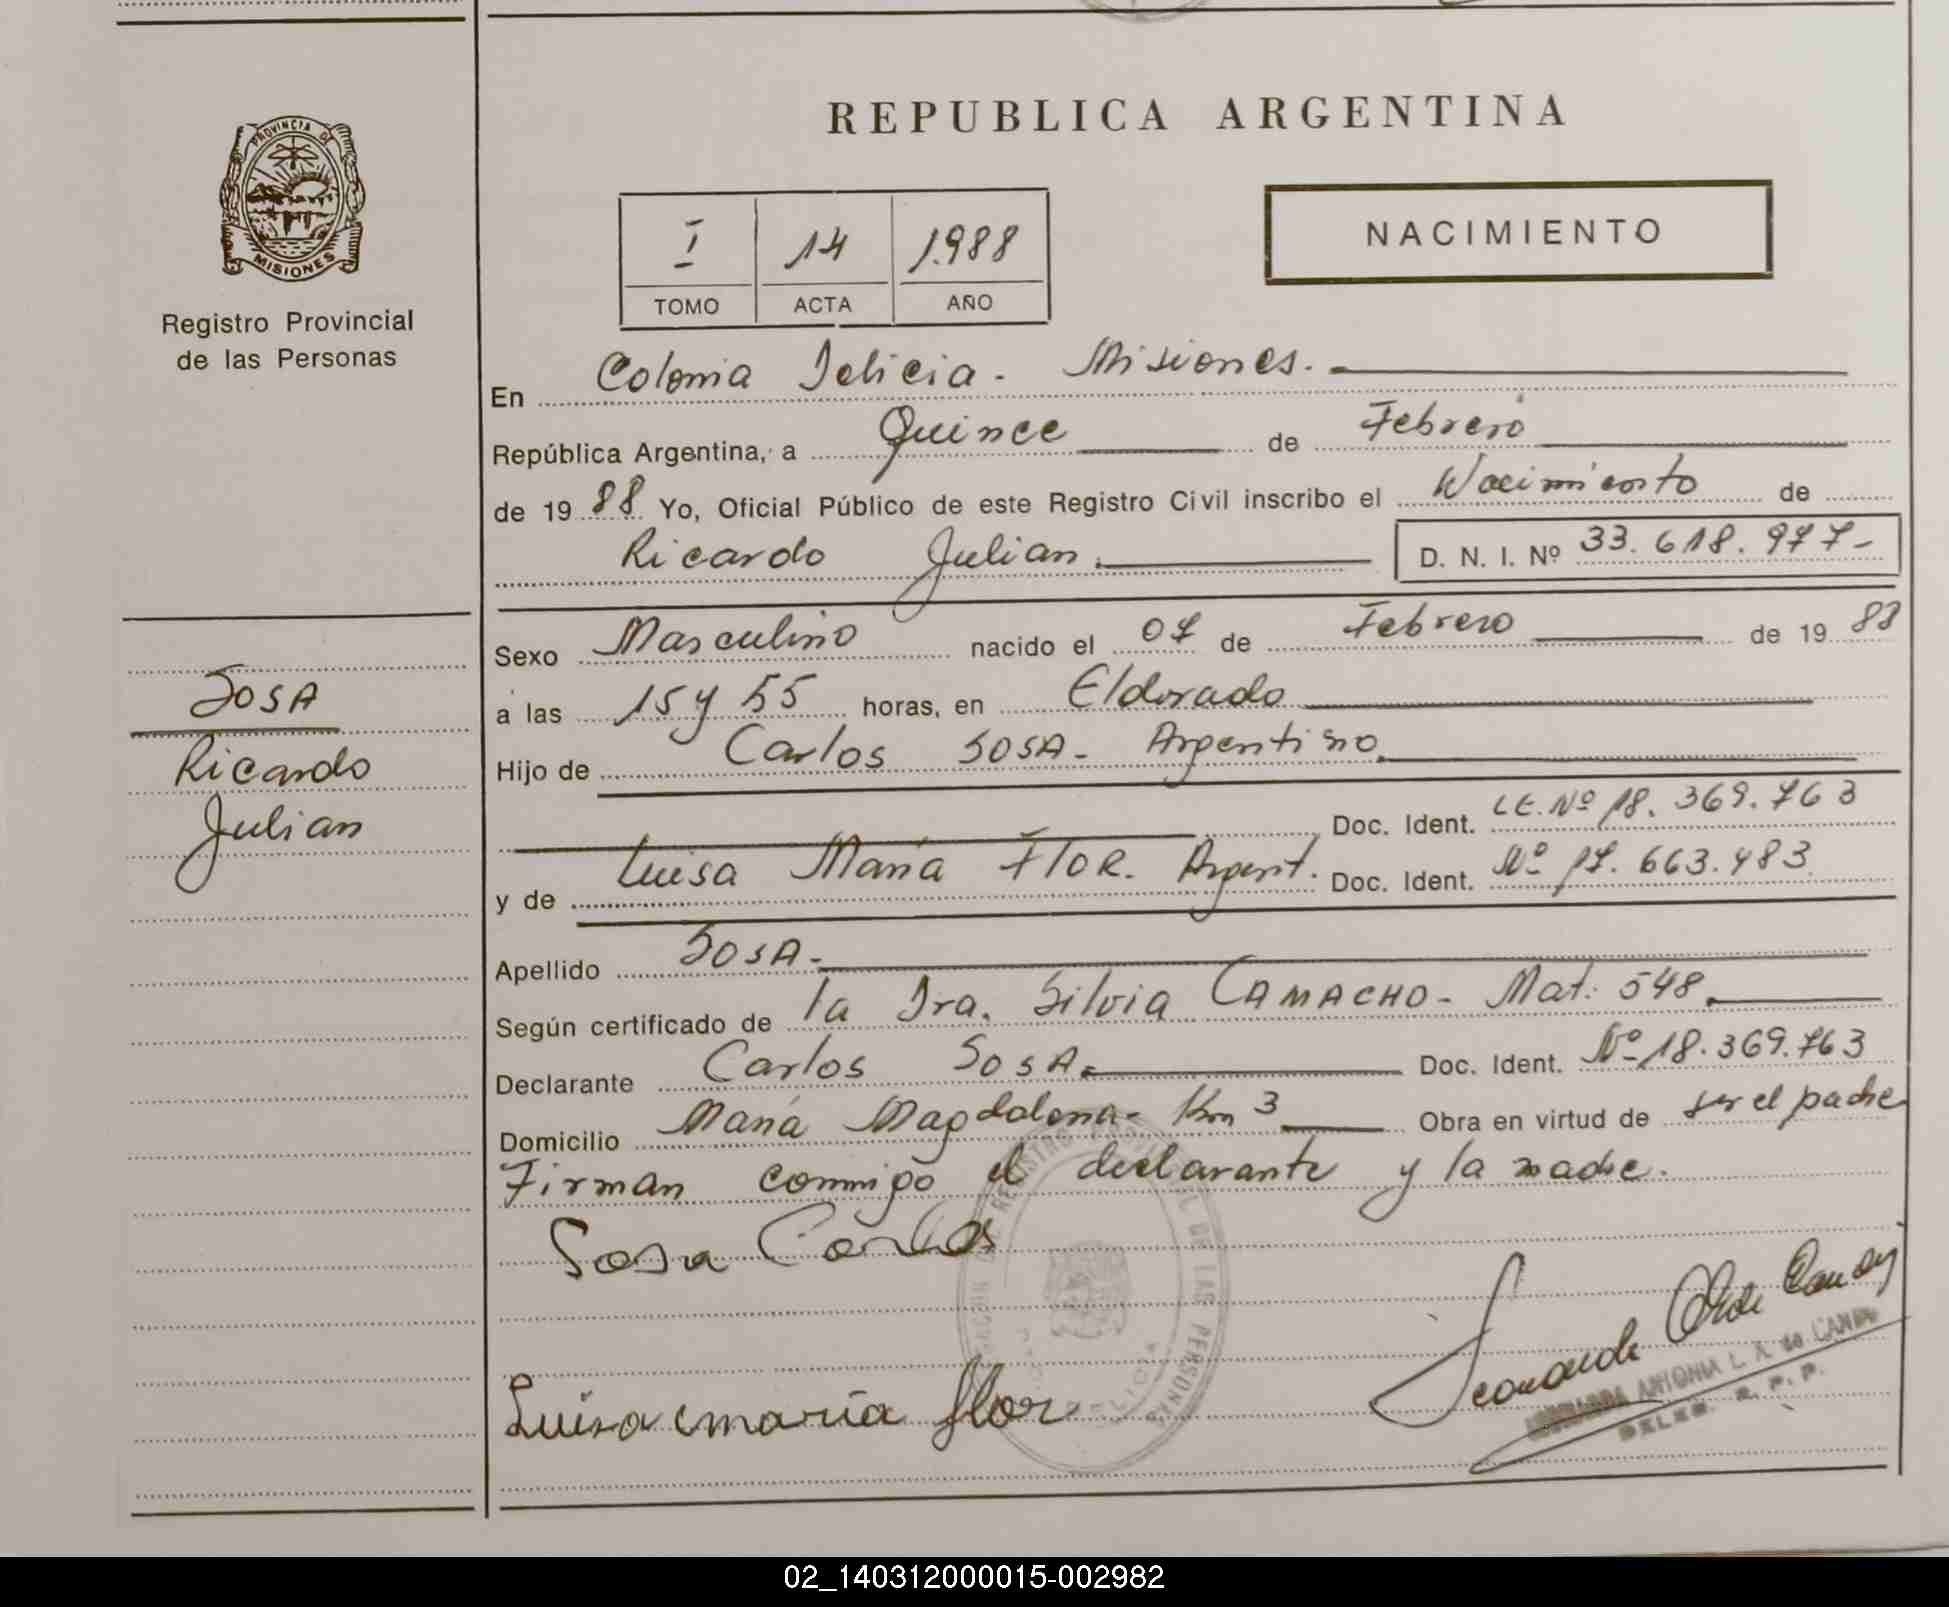 REPUBLICA ARGENTINA
PROVINCIA DE
MISIONES
Registro Provincial
de las Personas
I 14 1.988
TOMO ACTA AÑO
NACIMIENTO
En Colonia Delicia - Misiones.
República Argentina, a Quince de Febrero
de 19 88 Yo, Oficial Público de este Registro Civil inscribo el Nacimiento de
Ricardo Julian. D. N. I. Nº 33.618.977-
Sexo Masculino nacido el 07 de Febrero de 19 88
a las 15 y 55 horas, en Eldorado
Hijo de Carlos SOSA - Argentino
Doc. Ident. LE. Nº 18.369.763
y de Luisa María FLOR. Argent. Doc. Ident. Nº 17.663.483
Apellido SOSA -
Según certificado de la Dra. Silvia CAMACHO - Mat: 548
Declarante Carlos SOSA Doc. Ident. Nº 18.369.763
Domicilio María Magdalena - Km 3 Obra en virtud de ser el padre
Firman conmigo el declarante y la madre.
Sosa Carlos
Luisa maria flor
ANTONIA L. de
DELEG. R. P. P.
SOSA
Ricardo
Julian
02_140312000015-002982